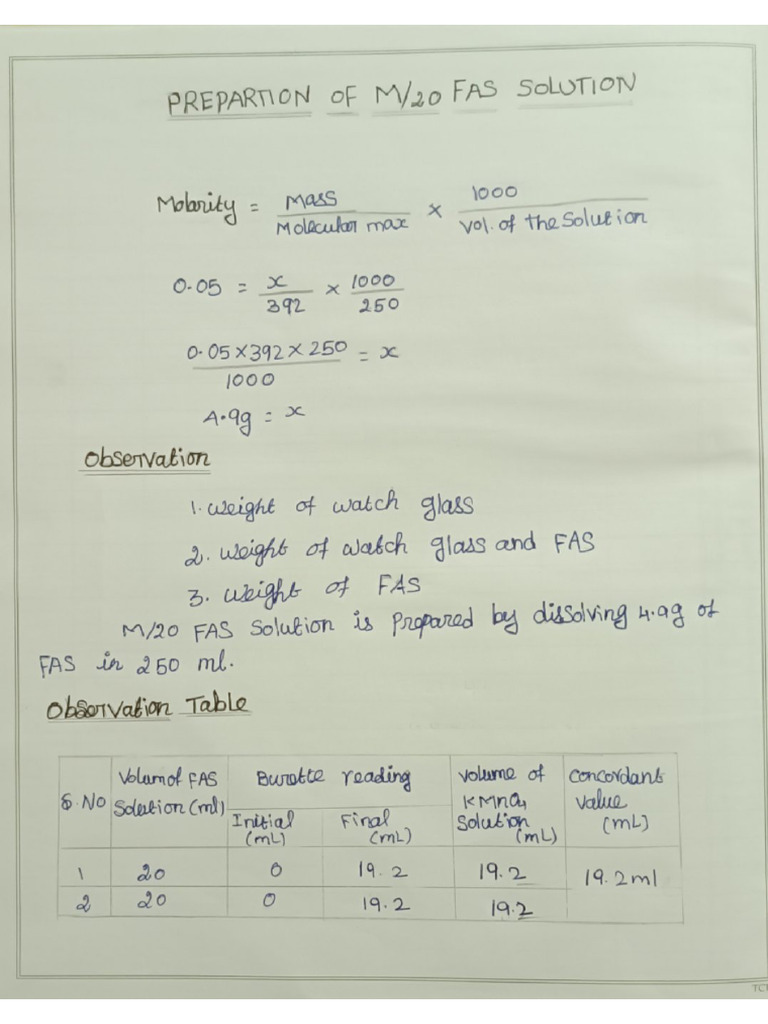 PREPARTION OF M/20 FAS SOLUTION
Molarity = Mass / Molecular max × 1000 / vol. of the Solution
0.05 = x / 392 × 1000 / 250
0.05×392×250 / 1000 = x
4.9g = x
Observation
1. weight of watch glass
2. weight of watch glass and FAS
3. weight of FAS
M/20 FAS Solution is Prepared by dissolving 4.9g of
FAS in 250 ml.
Observation Table
S.No | Volum of FAS Solution (ml) | Burette reading | Volume of KMnO4 Solution (mL) | Concordant Value (mL)
Initial (mL) | Final (mL)
1 | 20 | 0 | 19.2 | 19.2 | 19.2 ml
2 | 20 | 0 | 19.2 | 19.2